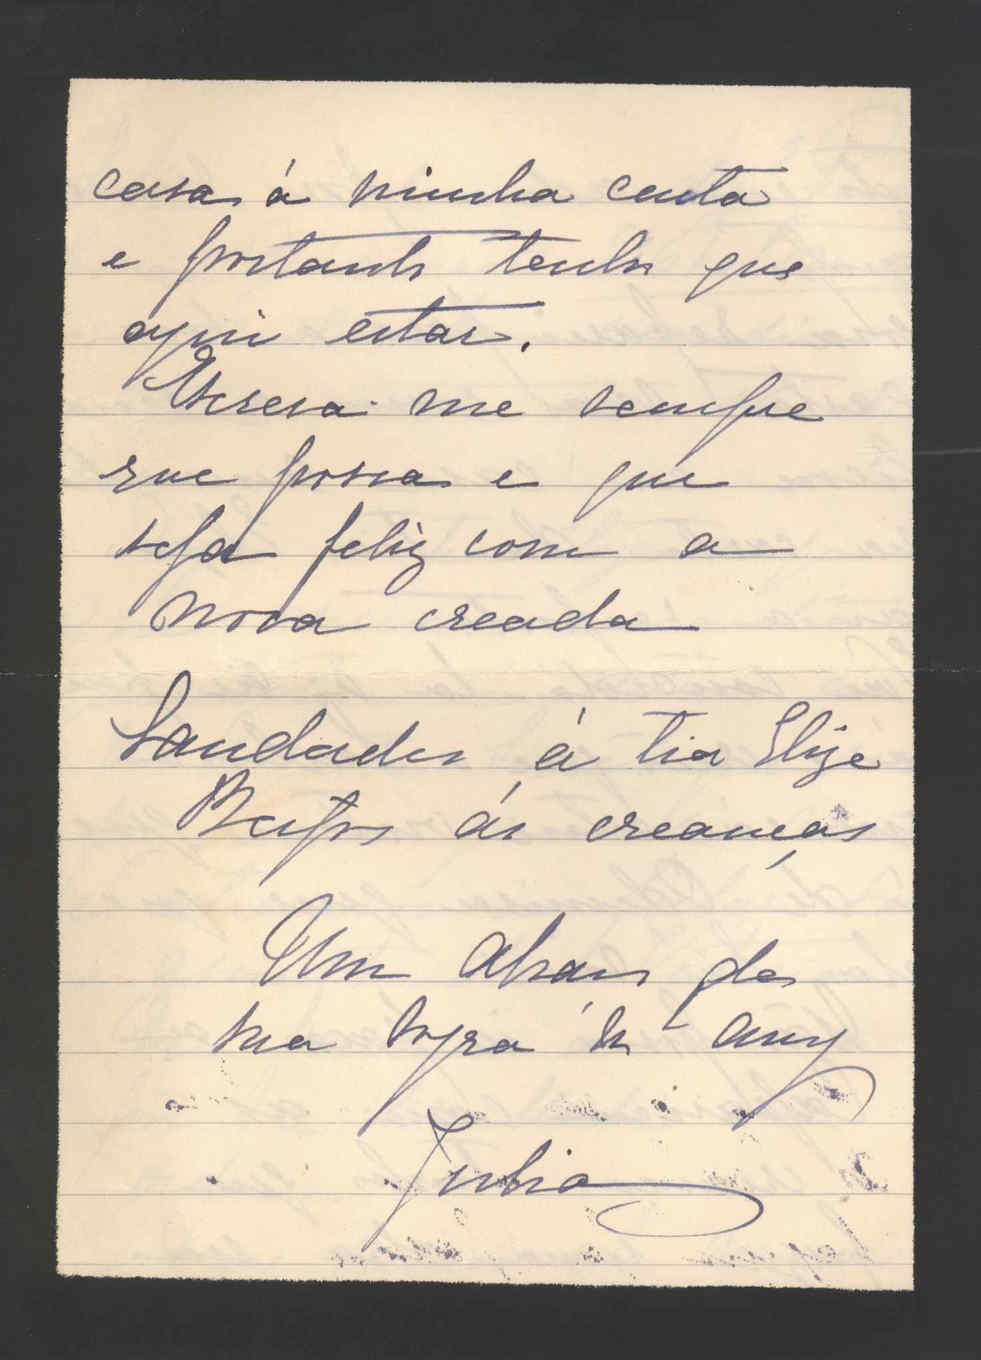 casa á minha conta
e portanto tenho que
aqui estar.
Escreva me sempre
que possa e que
seja feliz com a
nova creada
Saudades á tia Elize
Beijos ás creanças
Um abraço da
sua sogra e am
Julia